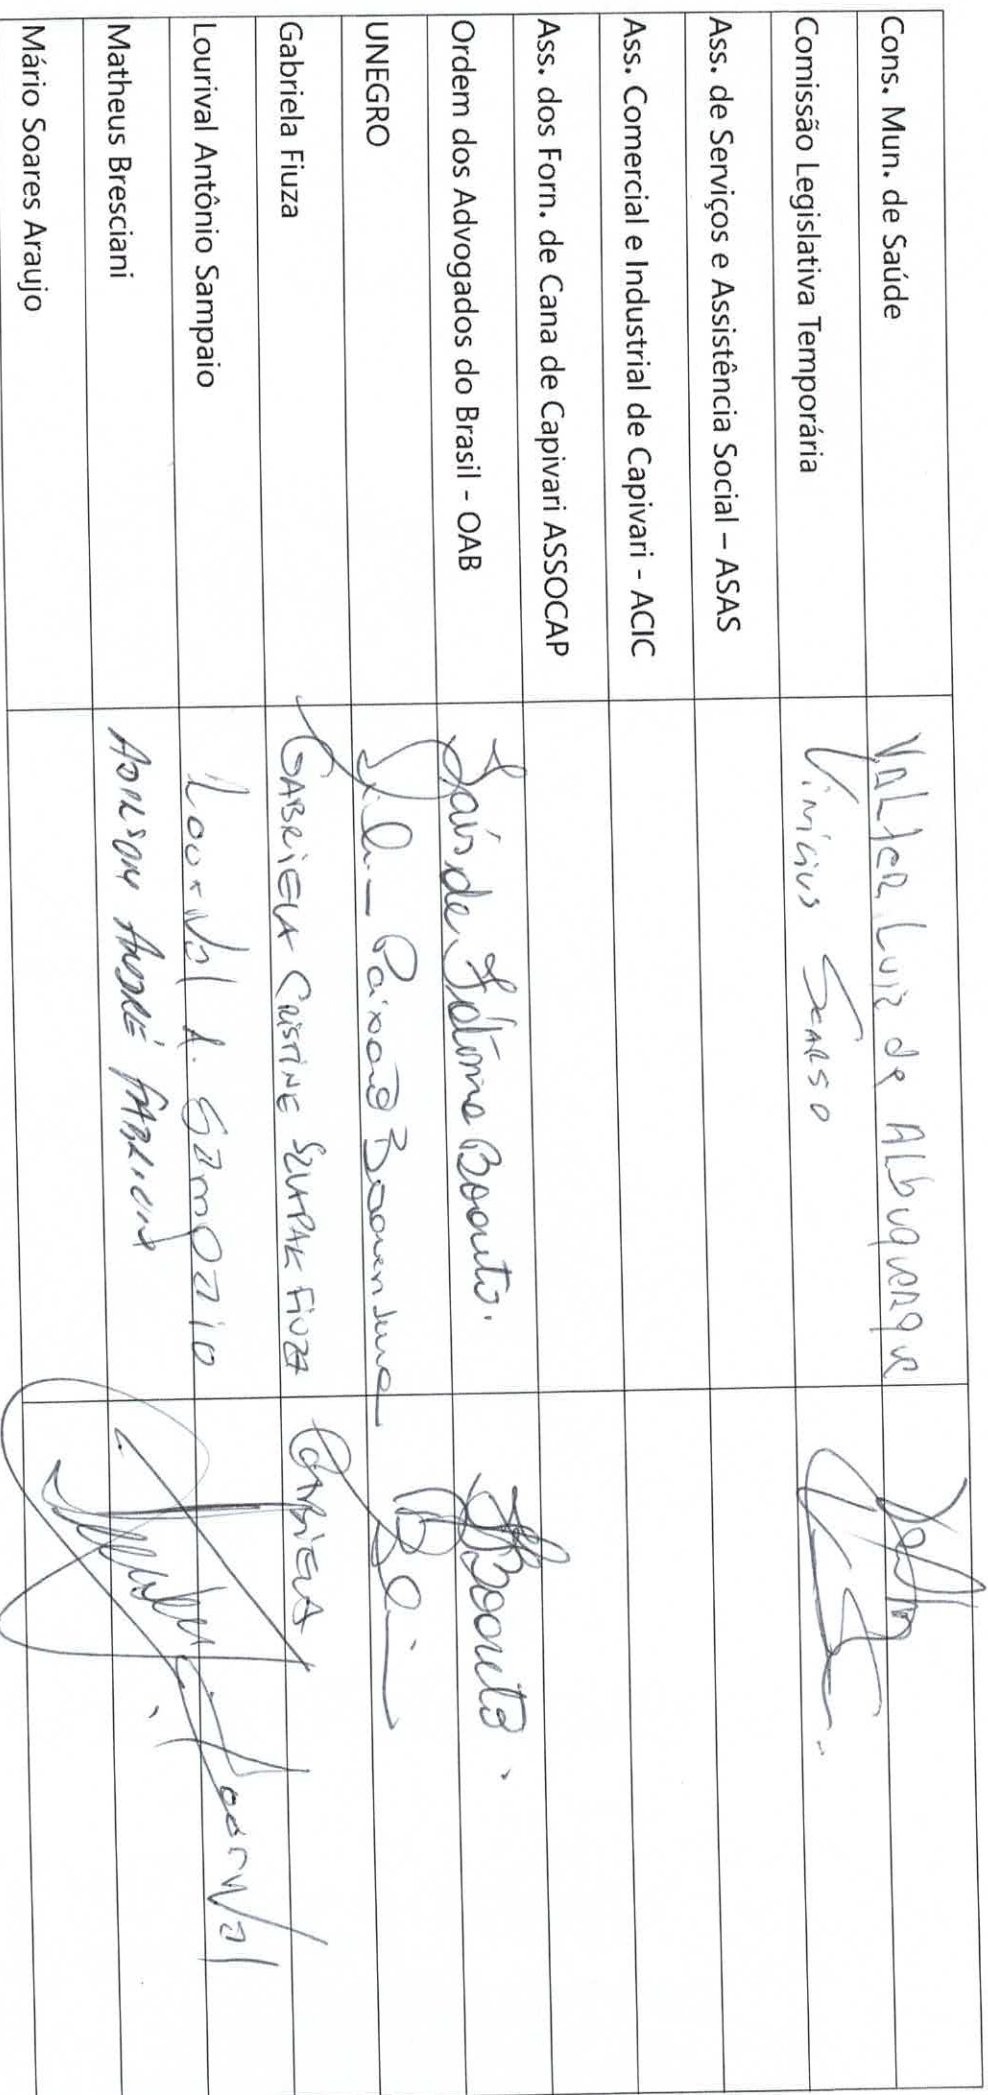 Cons. Mun. de Saúde VALTER LUIZ de ALbuqueRque
Comissão Legislativa Temporária Vinicius SCARSO
Ass. de Serviços e Assistência Social – ASAS
Ass. Comercial e Industrial de Capivari - ACIC
Ass. dos Forn. de Cana de Capivari ASSOCAP
Ordem dos Advogados do Brasil - OAB Laís de Fátima
UNEGRO Paixão
Gabriela Fiuza GABRIELA CRISTINE FIUZA GABRIELA
Lourival Antônio Sampaio Lourival A. Sampaio Lourival
Matheus Bresciani ANDRÉ
Mário Soares Araujo